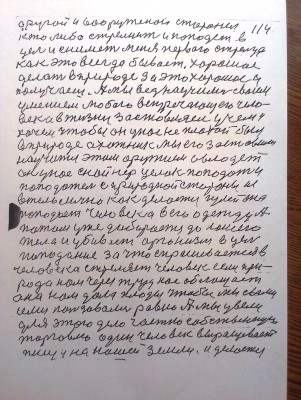 другой и вооруженой стороной 114
кто либо стремит и попадет в
цел и снимет меня первого отряда
как это всегда бывает, хорошое
делат в природе за это хорошое и
получаеш. А мы все научим своим
умением любого встречающую чело-
века в жизни заставляем учем и
хочем чтобы он у нас не плохой был
в природе охотник мы его заставим
научит и этим оружием овладет
он у нас снайпер целик попадат и
попадает с природной стороны и
как делает пуля она
попадает человека в его одежду А
потом уже добирается до самого
тела и убивает организм в цел
попадание за что спрашивается в
человека стреляет человек сам при-
рода нам через труд нас обогащает
она нам дала плоды чтобы мы своим
сами ползовали равно А мы ввели
для этого дело частно собственную
торговлю один человек выращивает
пищу на нашей земли. и делает